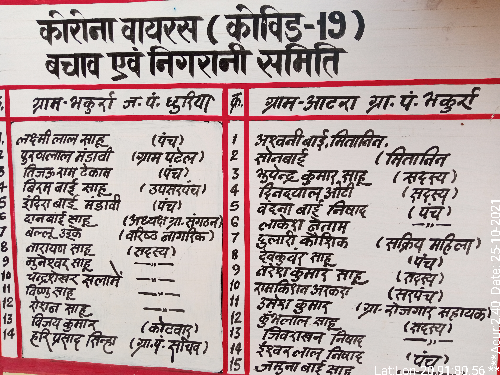 कोरोना वायरस (कोविड-19)
बचाव एवं निगरानी समिति
ग्राम-भकुर्रा ज.पं. धुरिया
क्र. ग्राम-आटरा ग्रा.पं. भकुर्रा
लक्ष्मी लाल साहू (पंच)
2 पुरनलाल मंडावी (ग्राम पटेल)
3 तिजऊ राम टेकाम (पंच)
4 बिरम बाई साहू (उपसरपंच)
5 इंदिरा बाई मंडावी (पंच)
6 दानबाई साहू (अध्यक्ष ग्रा. संगठन)
7 बल्लू उइके (वरिष्ठ नागरिक)
8 नारायण साहू (सदस्य)
9 मुनेश्वर साहू —"—
10 चन्द्रशेखर सलामे —"—
11 विष्णु साहू —"—
12 रोशन साहू —"—
13 विजय कुमार (कोटवार)
14 हरि प्रसाद सिन्हा (ग्रा.पं. सचिव)
1 अश्वनी बाई, मितानिन.
2 सोनबाई (मितानिन
3 कुमार साहू (सदस्य)
4 दिनदयाल ओटी (सदस्य)
5 वंदना बाई निषाद (पंच)
6 लोकेश नेताम
7 दुलारी कौशिक (सक्रिय महिला)
8 देवकुंवर साहू (पंच)
9 नरेश कुमार साहू (सदस्य)
10 रामकिशन (सरपंच)
11 उमेश कुमार (ग्रा. रोजगार सहायक)
12 कुंभलाल साहू (सदस्य)
13 जिवराखन निषाद —"—
14 ईश्वर लाल निषाद —"—
15 जमुना बाई साहू (पंच)